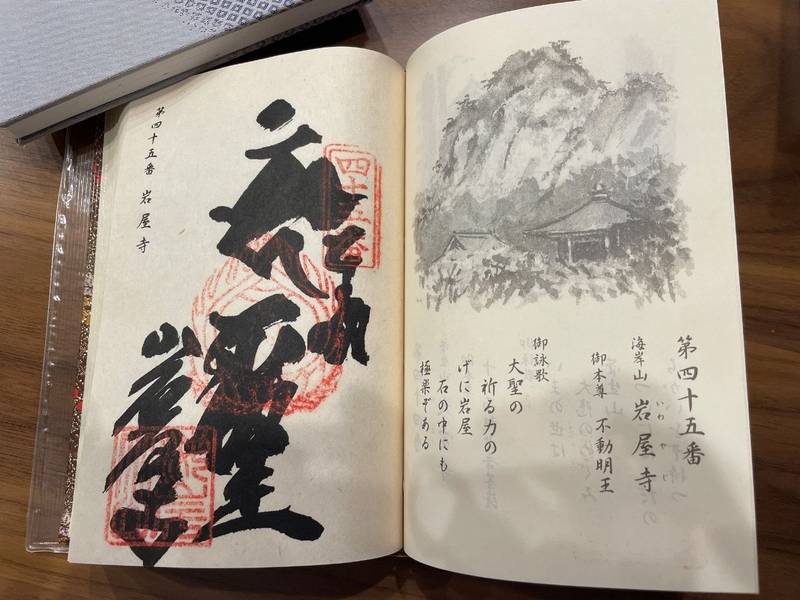 第四十五番
海岸山 岩屋寺
御本尊 不動明王
御詠歌
大聖の
祈る力の
げに岩屋
石の中にも
極楽ぞある
四十五番
岩屋寺
第四十五番 岩屋寺